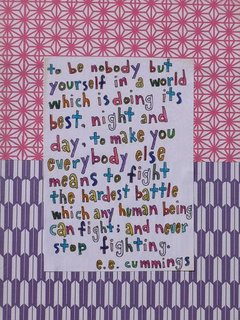 to be nobody but
yourself in a world
which is doing its
best, night and
day, to make you
everybody else
means to fight
the hardest battle
which any human being
can fight; and never
stop fighting.
e.e. cummings